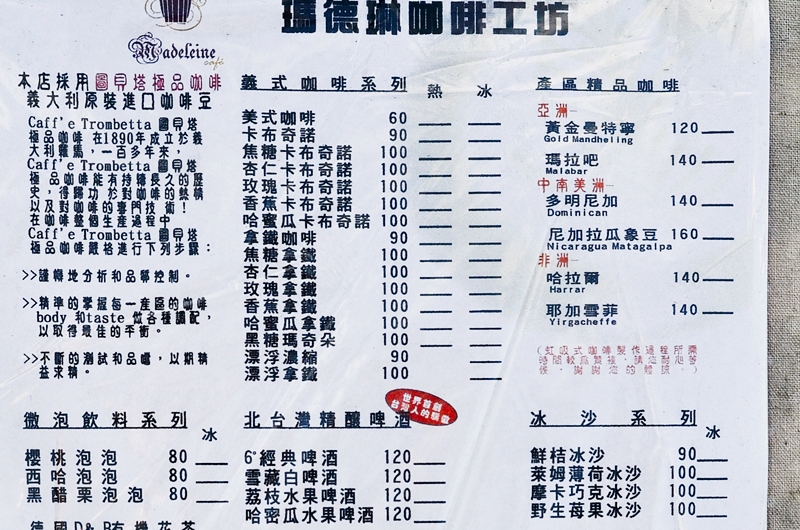 瑪德琳咖啡工坊
Madeleine
café
本店採用圖貝塔極品咖啡
義大利原裝進口咖啡豆
Caff'e Trombetta 圖貝塔
極品咖啡 在1890年成立於義
大利羅馬，一百多年來，
Caff'e Trombetta 圖貝塔
極品咖啡能有持續長久的歷
史，得歸功於對咖啡的熱情
以及對咖啡的專門技術！
在咖啡整個生產過程中
Caff'e Trombetta 圖貝塔
極品咖啡嚴格進行下列步驟：
>>謹慎地分析和品嚐控制。
>>精準的掌握每一產區的咖啡
body 和taste 做各種調配，
以取得最佳的平衡。
>>不斷的測試和品嚐，以期精
益求精。
義式咖啡系列 熱 冰
美式咖啡 60
卡布奇諾 90
焦糖卡布奇諾 100
杏仁卡布奇諾 100
玫瑰卡布奇諾 100
香蕉卡布奇諾 100
哈蜜瓜卡布奇諾 100
拿鐵咖啡 90
焦糖拿鐵 100
杏仁拿鐵 100
玫瑰拿鐵 100
香蕉拿鐵 100
哈蜜瓜拿鐵 100
黑糖瑪奇朵 100
漂浮濃縮 90
漂浮拿鐵 100
產區精品咖啡
亞洲
黃金曼特寧 120
Gold Mandheling
瑪拉吧 140
Malabar
中南美洲
多明尼加 140
Dominican
尼加拉瓜象豆 160
Nicaragua Matagalpa
非洲
哈拉爾 140
Harrar
耶加雪菲 140
Yirgacheffe
(虹吸式咖啡製作過程所需
時間較為費後，請您耐心等
候，謝謝您的體諒！)
微泡飲料系列 冰
櫻桃泡泡 80
西哈泡泡 80
黑醋栗泡泡 80
世界首創
台灣人的驕傲
北台灣精釀啤酒
6°經典啤酒 120
雪藏白啤酒 120
荔枝水果啤酒 120
哈密瓜水果啤酒 120
冰沙系列 冰
鮮桔冰沙 90
萊姆薄荷冰沙 100
摩卡巧克冰沙 100
野生苺果冰沙 100
德國D&B有機花茶